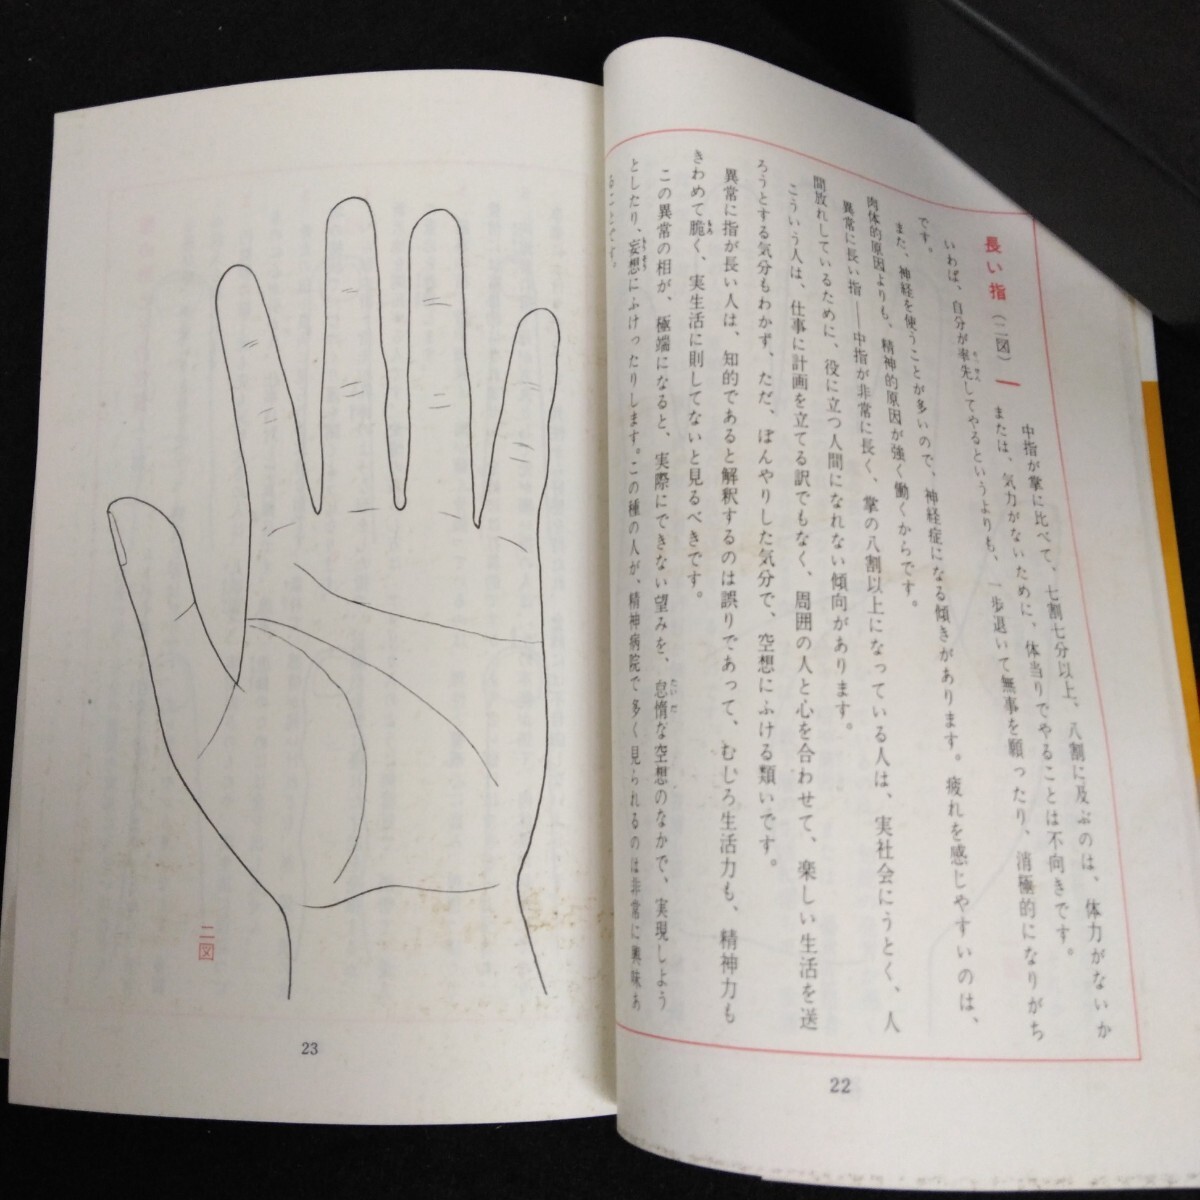 長い指(二図)
中指が掌に比べて、七割七分以上、八割に及ぶのは、体力がないか
または、気力がないために、体当りでやることは不向きです。
いわば、自分が率先してやるというよりも、一歩退いて無事を願ったり、消極的になりがち
です。
また、神経を使うことが多いので、神経症になる傾きがあります。疲れを感じやすいのは、
肉体的原因よりも、精神的原因が強く働くからです。
異常に長い指――中指が非常に長く、掌の八割以上になっている人は、実社会にうとく、人
間放れしているために、役に立つ人間になれない傾向があります。
こういう人は、仕事に計画を立てる訳でもなく、周囲の人と心を合わせて、楽しい生活を送
ろうとする気分もわかず、ただ、ぼんやりした気分で、空想にふける類いです。
異常に指が長い人は、知的であると解釈するのは誤りであって、むしろ生活力も、精神力も
きわめて脆く、実生活に則してないと見るべきです。
この異常の相が、極端になると、実際にできない望みを、怠惰な空想のなかで、実現しよう
としたり、妄想にふけったりします。この種の人が、精神病院で多く見られるのは非常に興味あ
ることです。
22
二図
23